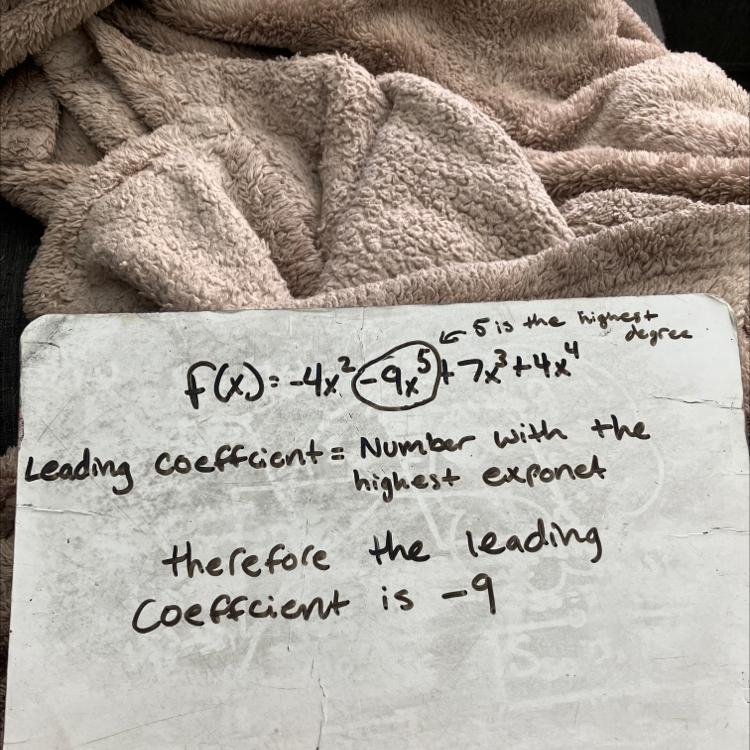 ← 5 is the highest
degree
f(x) = -4x² -9x⁵ + 7x³ + 4x⁴
Leading coeffcient = Number with the
highest exponet
therefore the leading
Coeffcient is -9